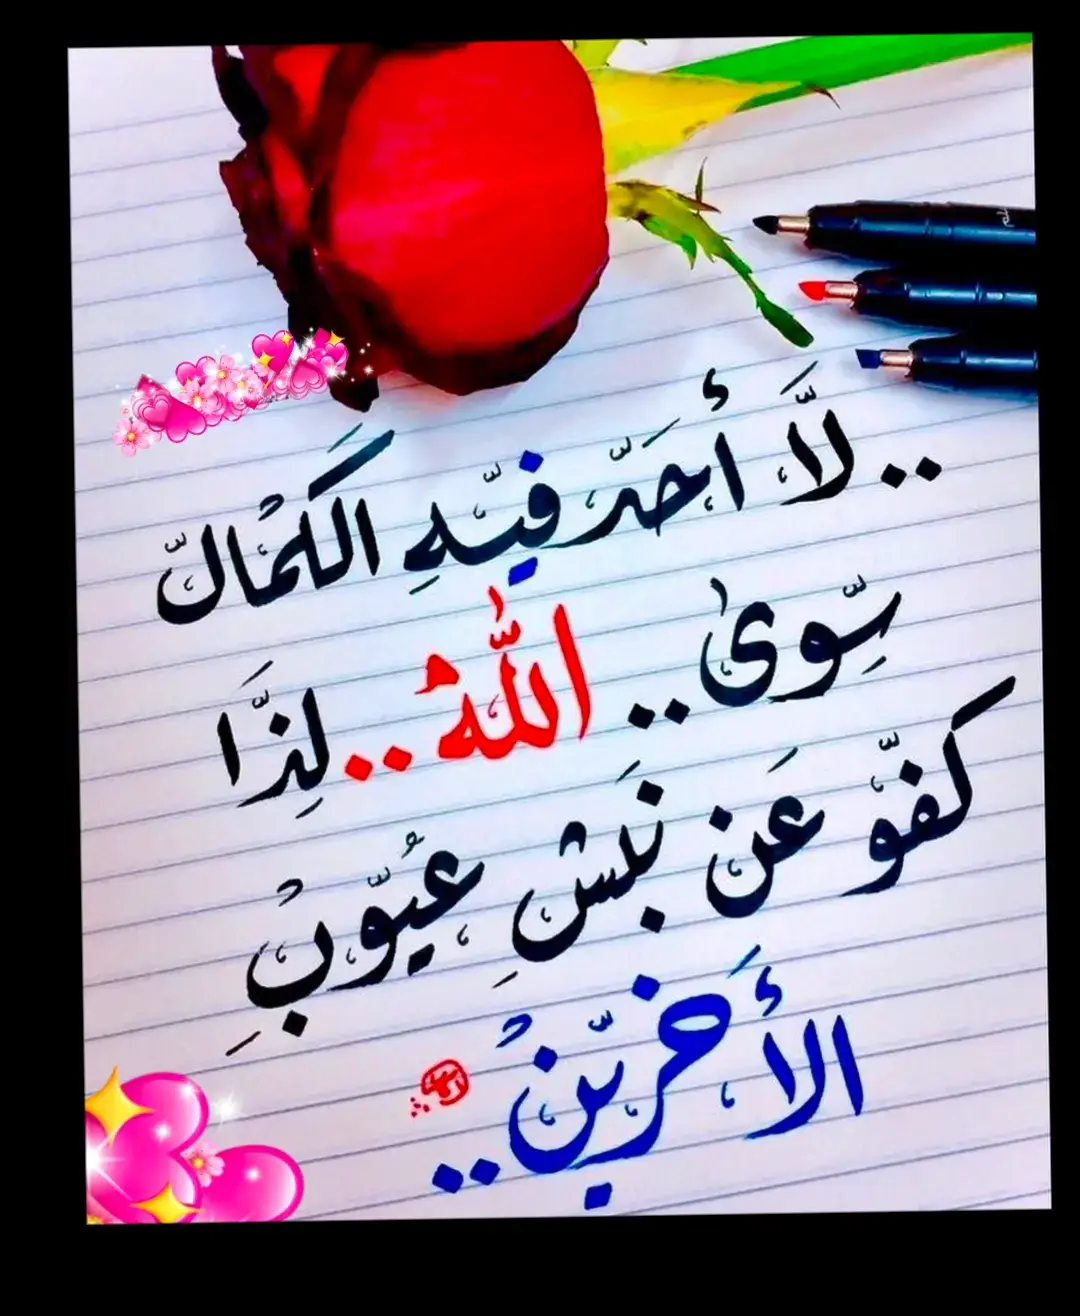 .. لَّا أَحَدّ فيّهِ الكَمْالّ
سِّوىٰ .. اللّٰهْ .. لِذَّا
كفوّ عَن نَبشِ عيُوّبْ
الأَخريّنْ ..